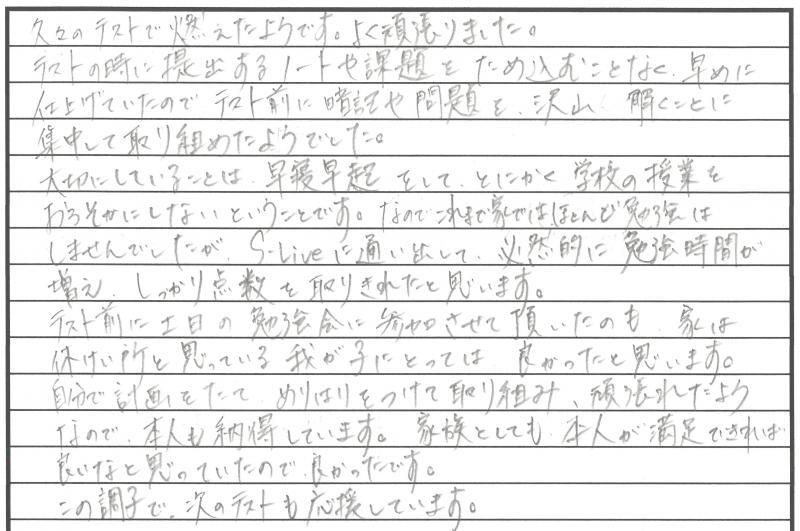 久々のテストで燃えたようです。よく頑張りました。
テストの時に提出あるノートや課題をため込むことなく、早めに
仕上げていたのでテスト前に暗記や問題を、沢山 解くことに
集中して取り組めたようでした。
大切にしていることは、早寝早起をして、とにかく学校の授業を
おろそかにしないということです。なのでこれまで家ではほとんど勉強は
しませんでしたが、S-Liveに通い出して、必然的に勉強時間が
増え、しっかり点数を取りきれたと思います。
テスト前に土日の勉強会に参加させて頂いたのも、家は
休けい所と思っている我が子にとっては 良かったと思います。
自分で計画をたて、めりはりをつけて取り組み、頑張れたよう
なので、本人も納得しています。家族としても、本人が満足できれば
良いなと思っていたので、良かったです。
この調子で、次のテストも応援しています。